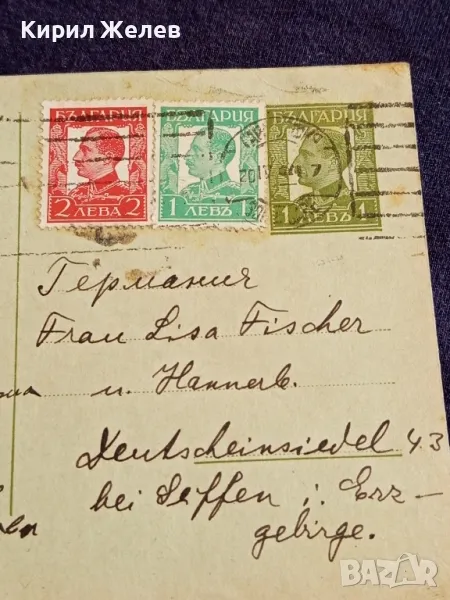 Кирил Желев
БЪЛГАРИЯ
2 ЛЕВА 2
БЪЛГАРИЯ
1 ЛЕВЪ
БЪЛГАРИЯ
1 ЛЕВЪ 1
Германия
Frau Lisa Fischer
u. Hannerb.
Deutscheinsiedel 43
bei Seiffen i. Erz-
gebirge.
BAZAR